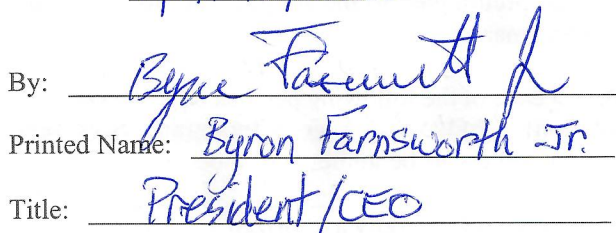 By: Byron Farnsworth Jr
Printed Name: Byron Farnsworth Jr.
Title: President/CEO